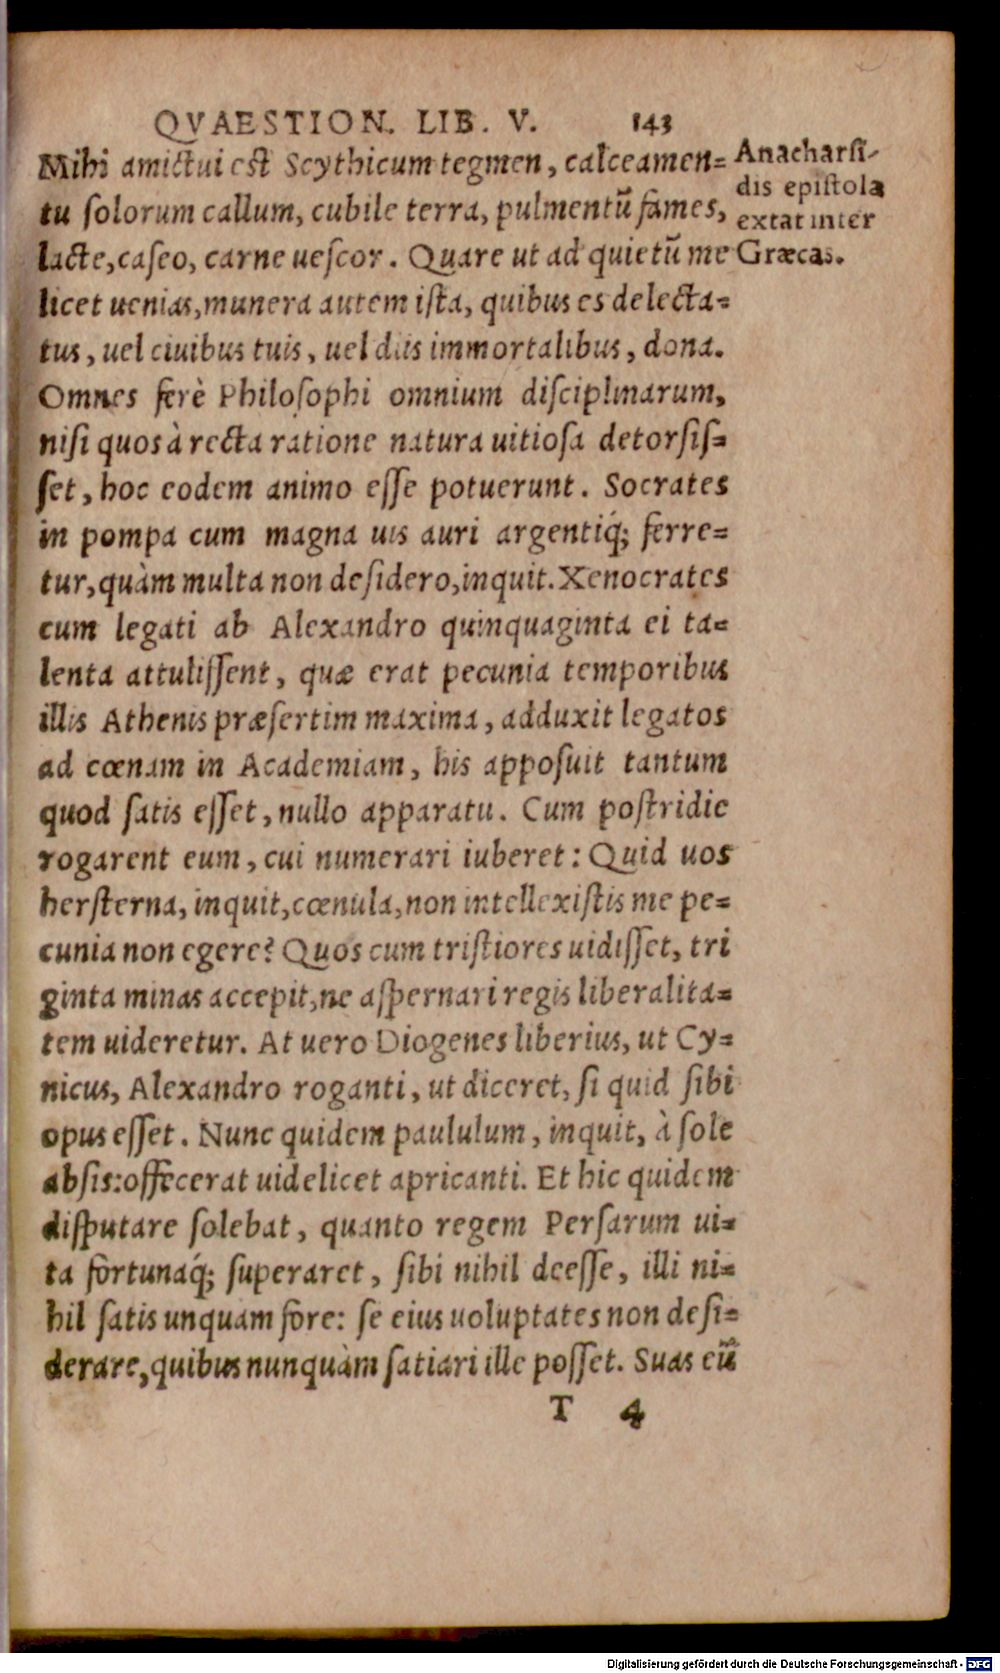 QVAESTION. LIB. V. 143
Mihi amictui est Scythicum tegmen, calceamen=
tu solorum callum, cubile terra, pulmentũ fames,
lacte, caseo, carne uescor. Quare ut ad quietũ me
licet uenias, munera autem ista, quibus es delecta=
tus, uel ciuibus tuis, uel diis immortalibus, dona.
Omnes ferè Philosophi omnium disciplinarum,
nisi quos à recta ratione natura uitiosa detorsis=
set, hoc eodem animo esse potuerunt. Socrates
in pompa cum magna uis auri argentiq́; ferre=
tur, quàm multa non desidero, inquit. Xenocrates
cum legati ab Alexandro quinquaginta ei ta=
lenta attulissent, quæ erat pecunia temporibus
illis Athenis præsertim maxima, adduxit legatos
ad cœnam in Academiam, his apposuit tantum
quod satis esset, nullo apparatu. Cum postridie
rogarent eum, cui numerari iuberet: Quid uos
hersterna, inquit, cœnula, non intellexistis me pe=
cunia non egere? Quos cum tristiores uidisset, tri
ginta minas accepit, ne aspernari regis liberalita=
tem uideretur. At uero Diogenes liberius, ut Cy=
nicus, Alexandro roganti, ut diceret, si quid sibi
opus esset. Nunc quidem paululum, inquit, à sole
absis: offecerat uidelicet apricanti. Et hic quidem
disputare solebat, quanto regem Persarum ui=
ta fortunaq́; superaret, sibi nihil deesse, illi ni=
hil satis unquam fore: se eius uoluptates non desi=
derare, quibus nunquàm satiari ille posset. Suas eũ
T 4
Anacharsi-
dis epistola
extat inter
Græcas.
Digitalisierung gefördert durch die Deutsche Forschungsgemeinschaft - DFG